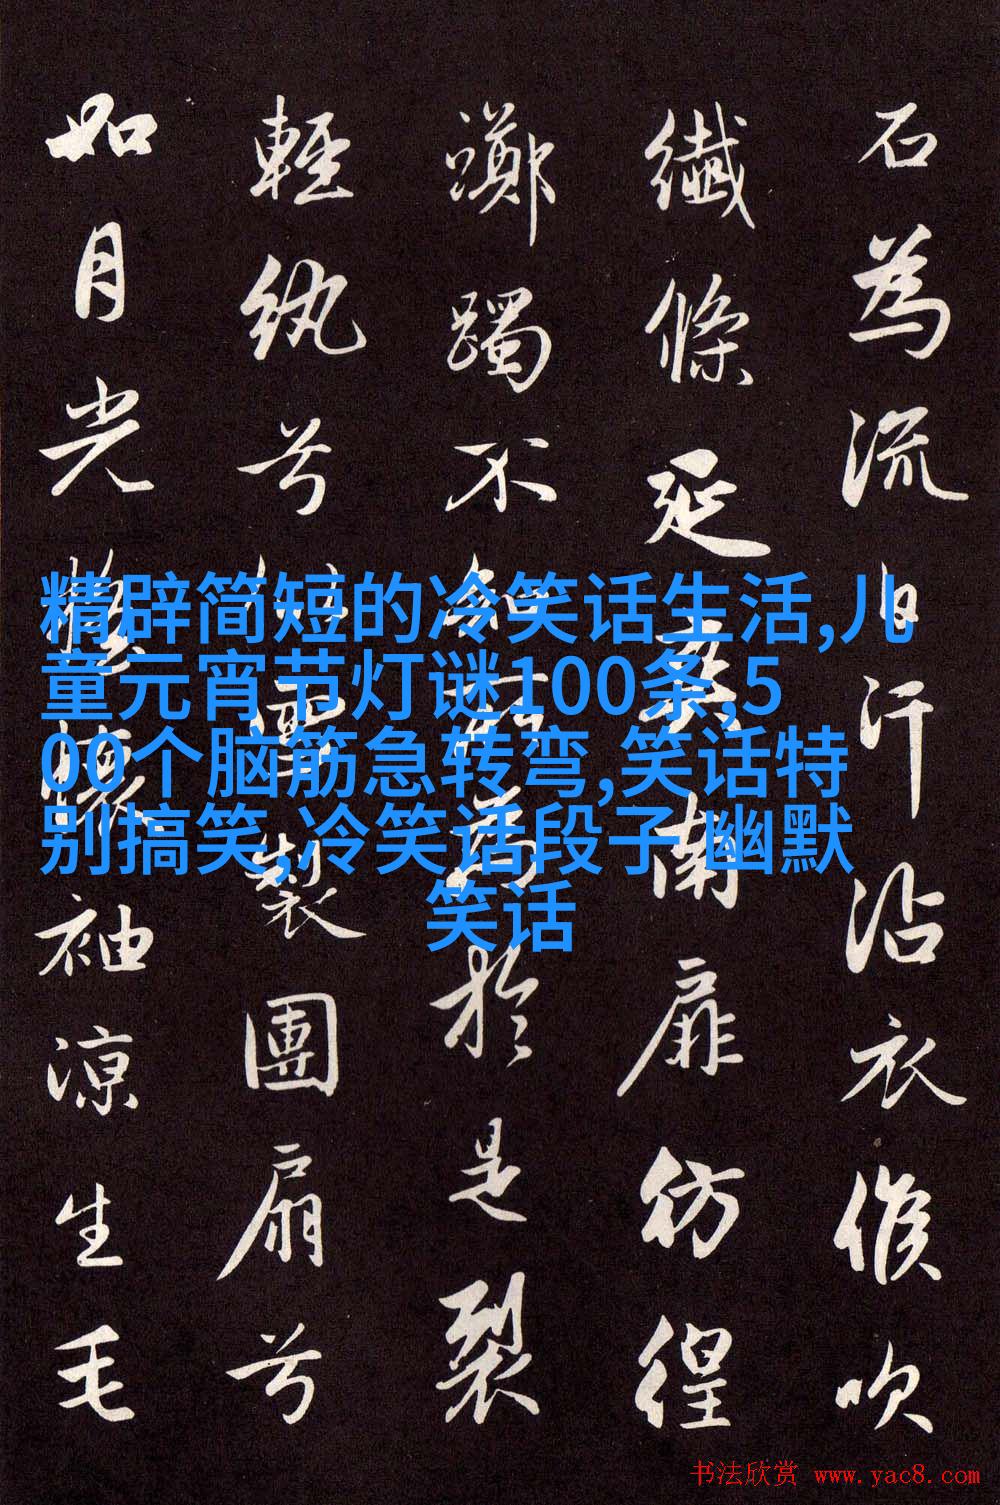 精辟简短的冷笑话生活,儿
童元宵节灯谜100条,5
00个脑筋急转弯,笑话特
别搞笑,冷笑话段子 幽默
笑话
石為流日汗沾衣候吹
纖條延南扉彷徨
躅不知所為於是裂
輕紈兮雪製團扇兮
如月光懷袖涼生毛
书法欣赏 www.yac8.com